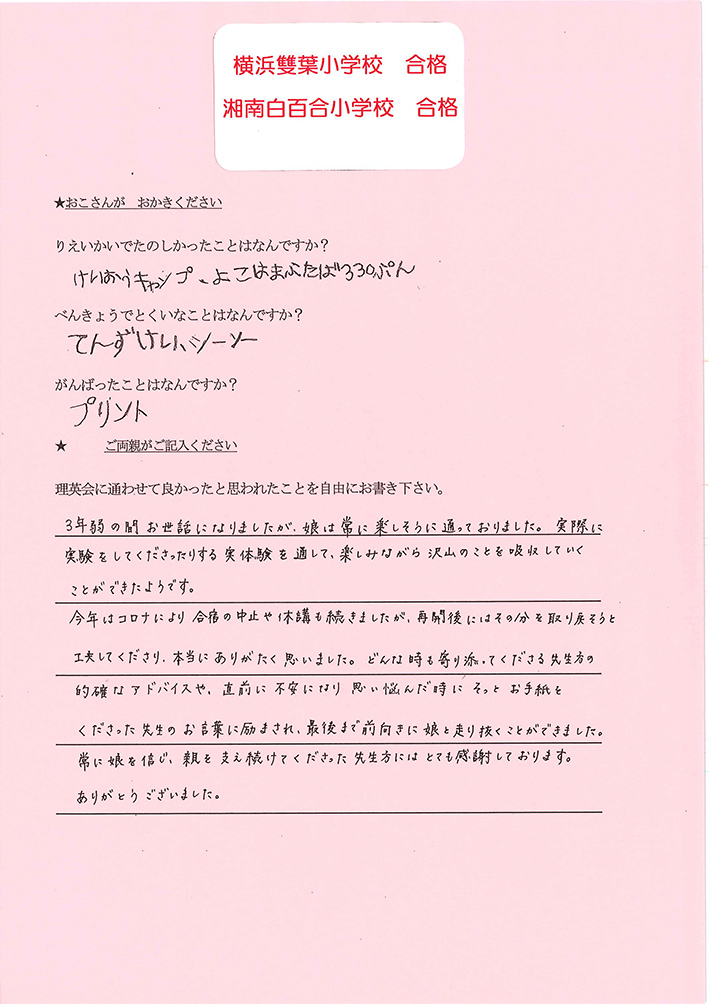 横浜雙葉小学校　合格
湘南白百合小学校　合格
★おこさんが　おかきください
りえいかいでたのしかったことはなんですか？
けいおうキャンプ、よこはまふたば330ぷん
べんきょうでとくいなことはなんですか？
てんずけい、シーソー
がんばったことはなんですか？
プリント
★　ご両親がご記入ください
理英会に通わせて良かったと思われたことを自由にお書き下さい。
3年弱の間お世話になりましたが、娘は常に楽しそうに通っておりました。実際に
実験をしてくださったりする実体験を通して、楽しみながら沢山のことを吸収していく
ことができたようです。
今年はコロナにより合宿の中止や休講も続きましたが、再開後にはその分を取り戻そうと
工夫してくださり、本当にありがたく思いました。どんな時も寄り添ってくださる先生方の
的確なアドバイスや、直前に不安になり思い悩んだ時にそっとお手紙を
くださった先生のお言葉に励まされ、最後まで前向きに娘と走り抜くことができました。
常に娘を信じ、親を支え続けてくださった先生方にはとても感謝しております。
ありがとうございました。